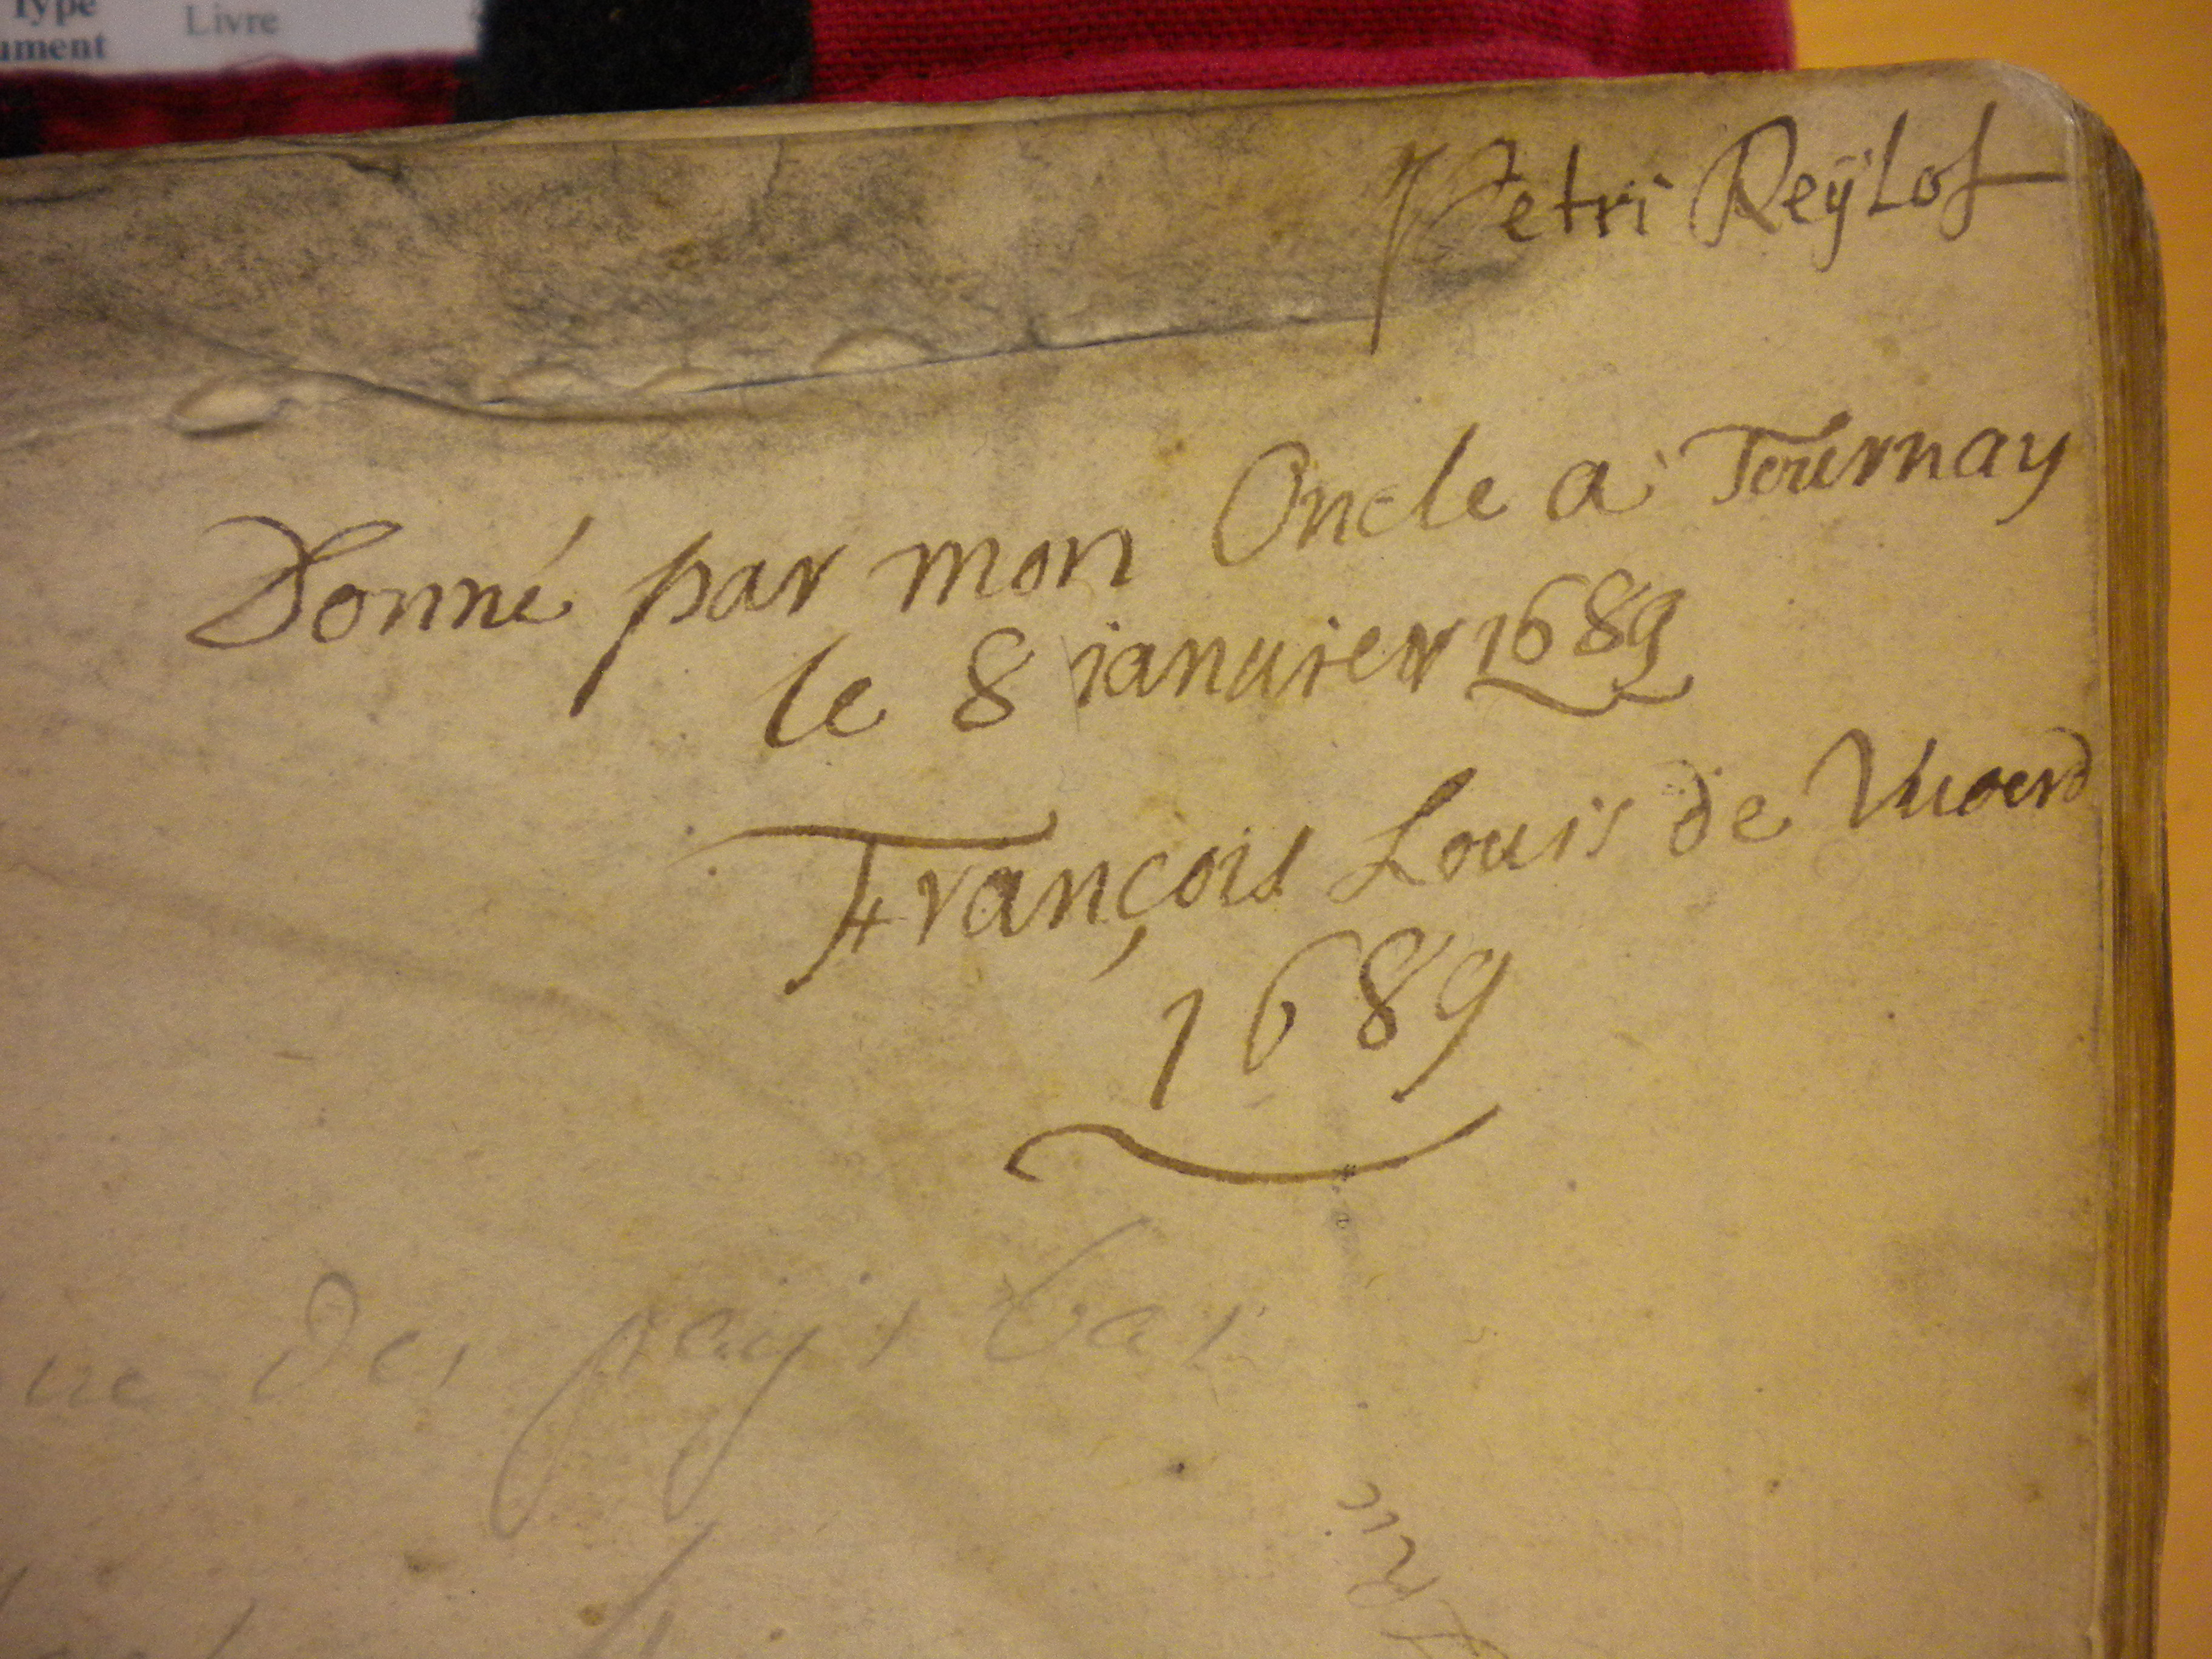 Type
Livre
ument
Petri Reÿlof
Donné par mon Oncle a Tournay
le 8 ianuier 1689
François Louis de Vuoerd
1689
des pays bas